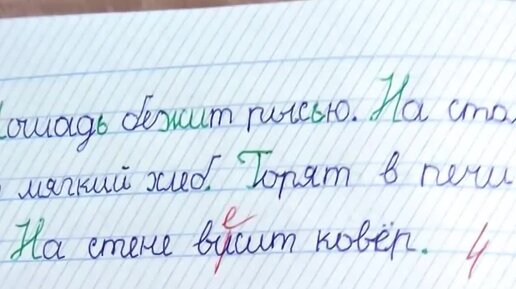 Лошадь бежит рысью. На сто
мягкий хлеб. Горят в печи
е
На стене висит ковёр. 4